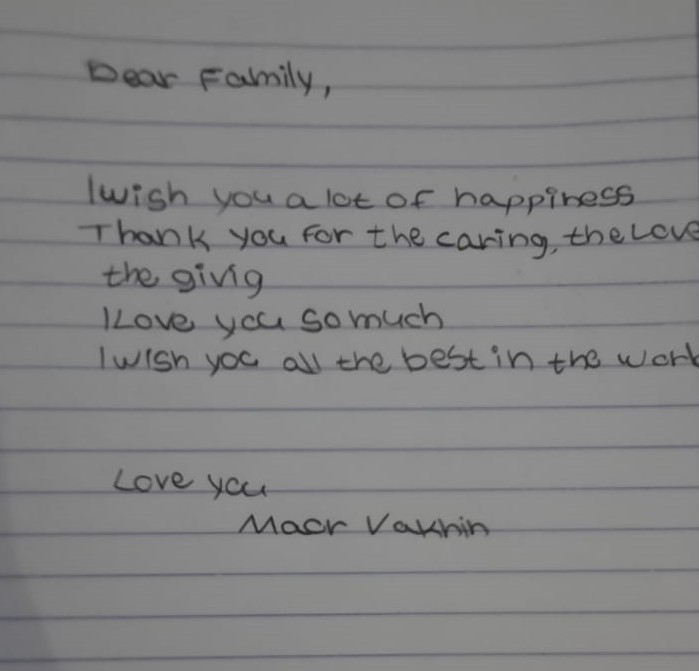 Dear Family,
I wish you a lot of happiness
Thank you for the caring, the Love
the givig
I Love you so much
I wish you all the best in the
Love you
Maor Vaknin